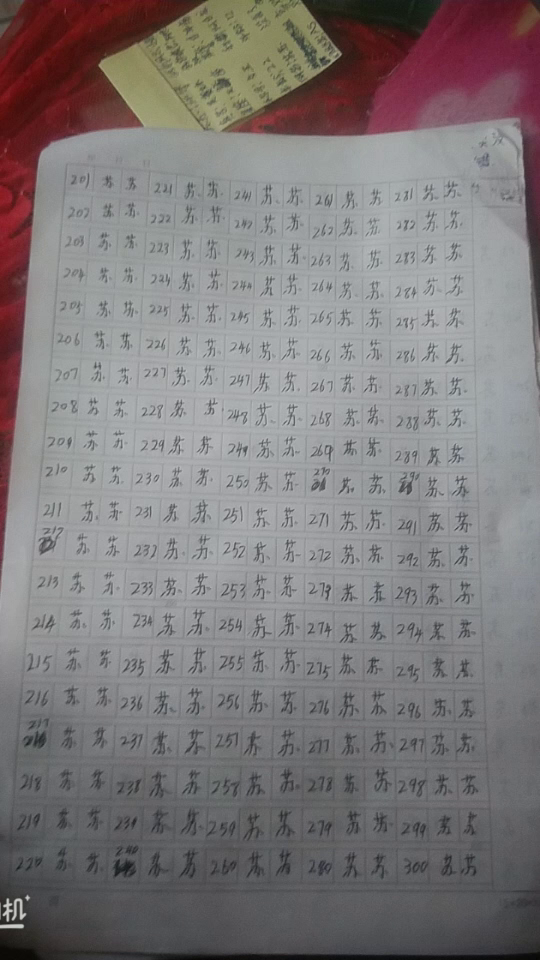 201 苏 苏 221 苏 苏 241 苏 苏 261 苏 苏 281 苏 苏
202 苏 苏 222 苏 苏 242 苏 苏 262 苏 苏 282 苏 苏
203 苏 苏 223 苏 苏 243 苏 苏 263 苏 苏 283 苏 苏
204 苏 苏 224 苏 苏 244 苏 苏 264 苏 苏 284 苏 苏
205 苏 苏 225 苏 苏 245 苏 苏 265 苏 苏 285 苏 苏
206 苏 苏 226 苏 苏 246 苏 苏 266 苏 苏 286 苏 苏
207 苏 苏 227 苏 苏 247 苏 苏 267 苏 苏 287 苏 苏
208 苏 苏 228 苏 苏 248 苏 苏 268 苏 苏 288 苏 苏
209 苏 苏 229 苏 苏 249 苏 苏 269 苏 苏 289 苏 苏
210 苏 苏 230 苏 苏 250 苏 苏 270 苏 苏 290 苏 苏
211 苏 苏 231 苏 苏 251 苏 苏 271 苏 苏 291 苏 苏
212 苏 苏 232 苏 苏 252 苏 苏 272 苏 苏 292 苏 苏
213 苏 苏 233 苏 苏 253 苏 苏 279 苏 苏 293 苏 苏
214 苏 苏 234 苏 苏 254 苏 苏 274 苏 苏 294 苏 苏
215 苏 苏 235 苏 苏 255 苏 苏 275 苏 苏 295 苏 苏
216 苏 苏 236 苏 苏 256 苏 苏 276 苏 苏 296 苏 苏
217 苏 苏 237 苏 苏 257 苏 苏 277 苏 苏 297 苏 苏
218 苏 苏 238 苏 苏 258 苏 苏 278 苏 苏 298 苏 苏
219 苏 苏 239 苏 苏 259 苏 苏 279 苏 苏 299 苏 苏
220 苏 苏 240 苏 苏 260 苏 苏 280 苏 苏 300 苏 苏
机